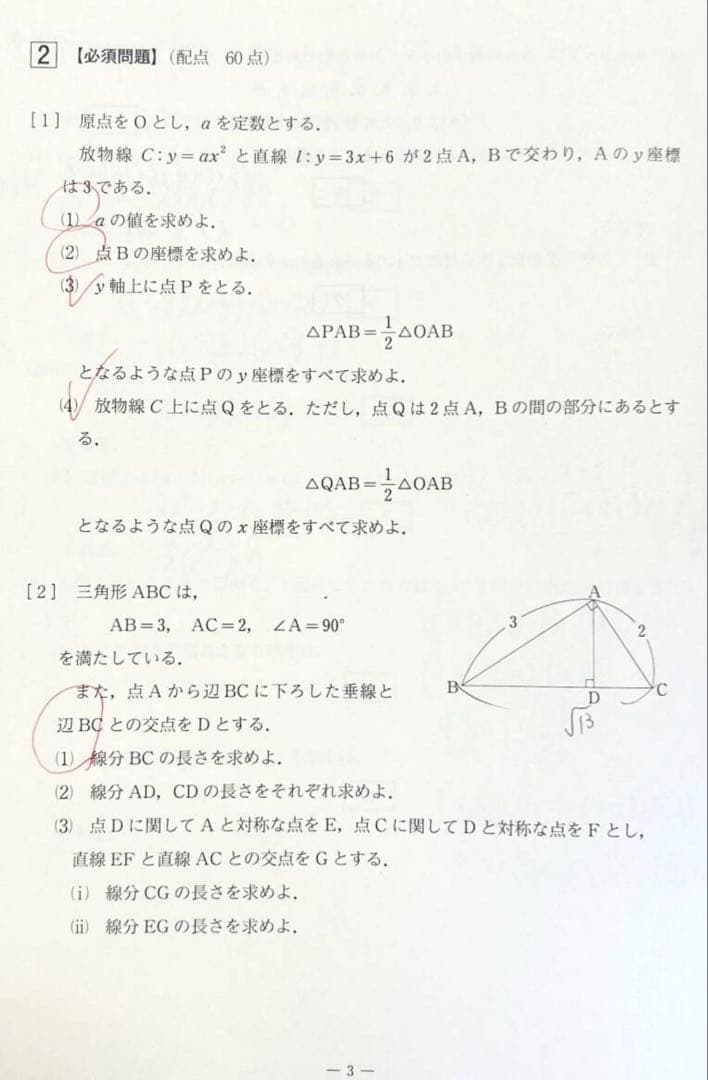 2 【必須問題】(配点 60点)
[1] 原点をOとし，aを定数とする．
放物線 C：y＝ax² と直線 l：y＝3x＋6 が2点A，Bで交わり，Aのy座標
は3である．
(1) aの値を求めよ．
(2) 点Bの座標を求めよ．
(3) y軸上に点Pをとる．
△PAB＝1/2△OAB
となるような点Pのy座標をすべて求めよ．
(4) 放物線C上に点Qをとる．ただし，点Qは2点A，Bの間の部分にあるとす
る．
△QAB＝1/2△OAB
となるような点Qのx座標をすべて求めよ．
[2] 三角形ABCは，
AB＝3， AC＝2， ∠A＝90°
を満たしている．
また，点Aから辺BCに下ろした垂線と
辺BCとの交点をDとする．
A
3
2
B
D
C
√13
(1) 線分BCの長さを求めよ．
(2) 線分AD，CDの長さをそれぞれ求めよ．
(3) 点Dに関してAと対称な点をE，点Cに関してDと対称な点をFとし，
直線EFと直線ACとの交点をGとする．
(i) 線分CGの長さを求めよ．
(ii) 線分EGの長さを求めよ．
— 3 —